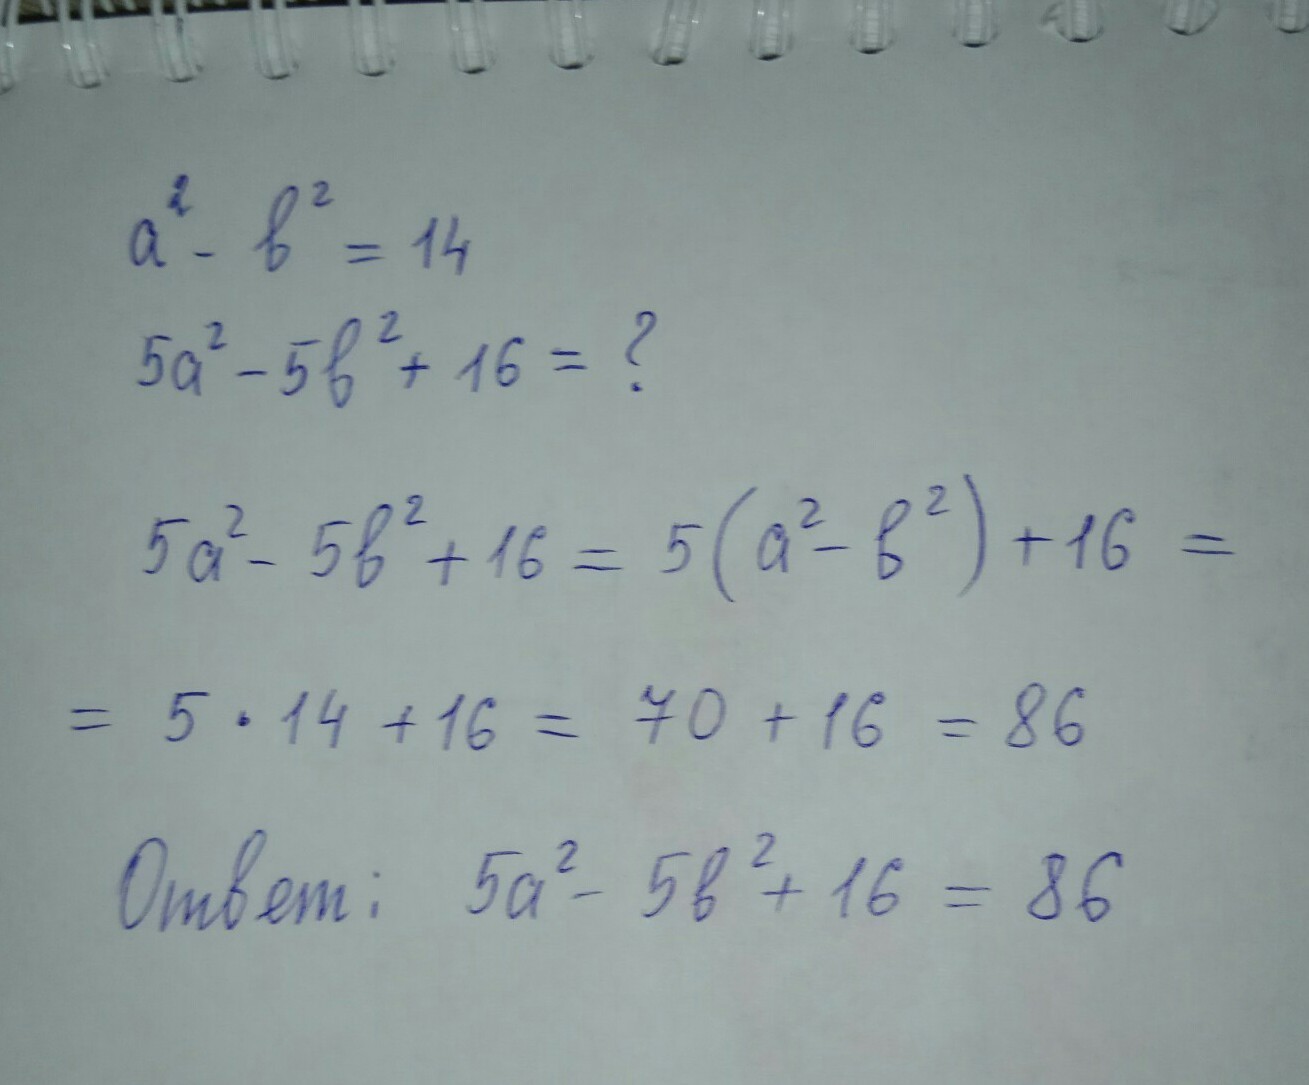 a² - b² = 14
5a² - 5b² + 16 = ?
5a² - 5b² + 16 = 5(a² - b²) + 16 =
= 5 · 14 + 16 = 70 + 16 = 86
Ответ: 5a² - 5b² + 16 = 86